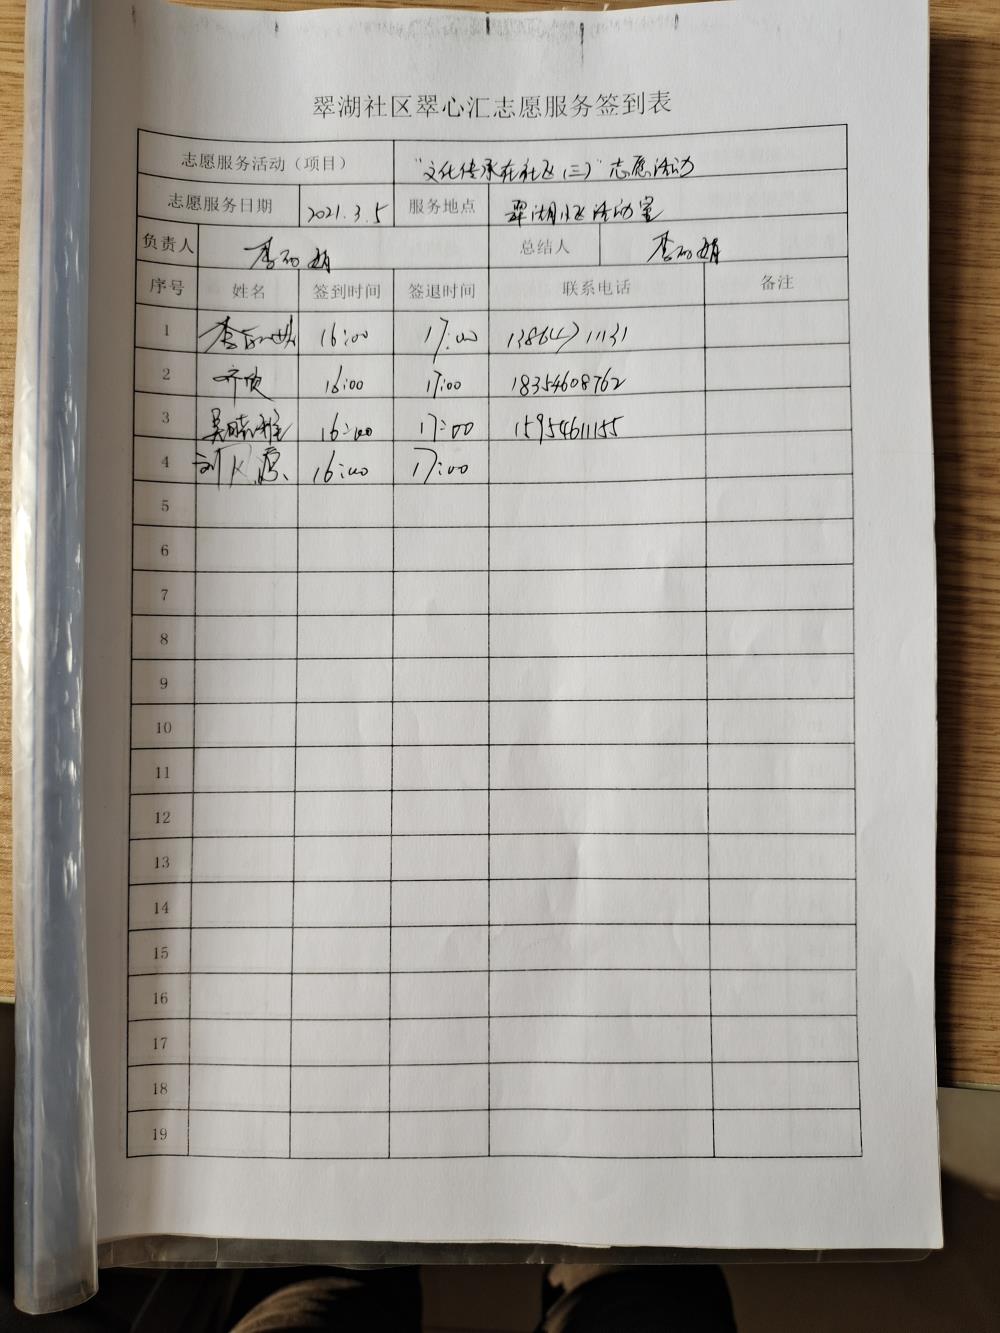 翠湖社区翠心汇志愿服务签到表
志愿服务活动（项目） “文化传承在社区（三）”志愿活动
志愿服务日期 2021.3.5 服务地点 翠湖社区活动室
负责人 李 娟 总结人 李 娟
序号 姓名 签到时间 签退时间 联系电话 备注
1 李 16:00 17:00 13864711131
2 齐 16:00 17:00 18354608762
3 吴晓雅 16:00 17:00 15954611155
4 刘 16:00 17:00
5
6
7
8
9
10
11
12
13
14
15
16
17
18
19